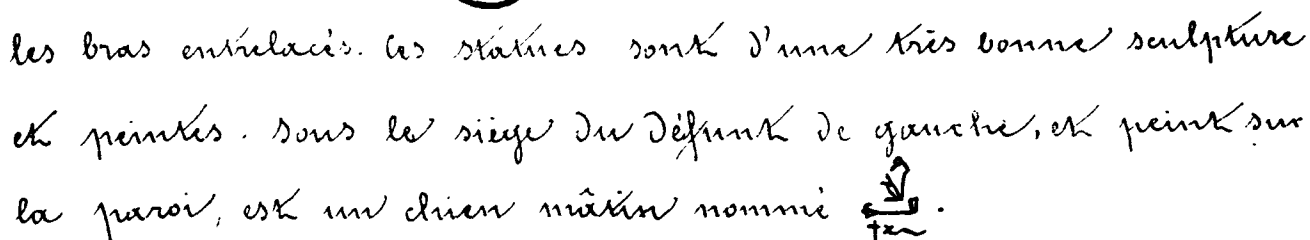 les bras entrelacés. Ces statues sont d'une très bonne sculpture
et peintes. Sous le siège du défunt de gauche, et peint sur
la paroi, est un chien mâtin nommé .